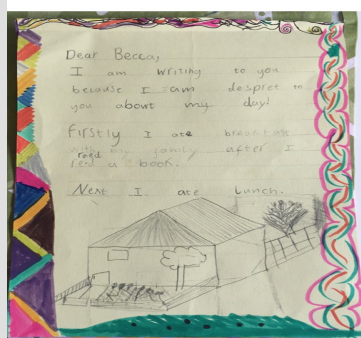 Dear Becca,
I am writing to you
because I am despret to
you about my day!
Firstly I ate breakfast
my family after I
read
red a book.
Next I ate Lunch.